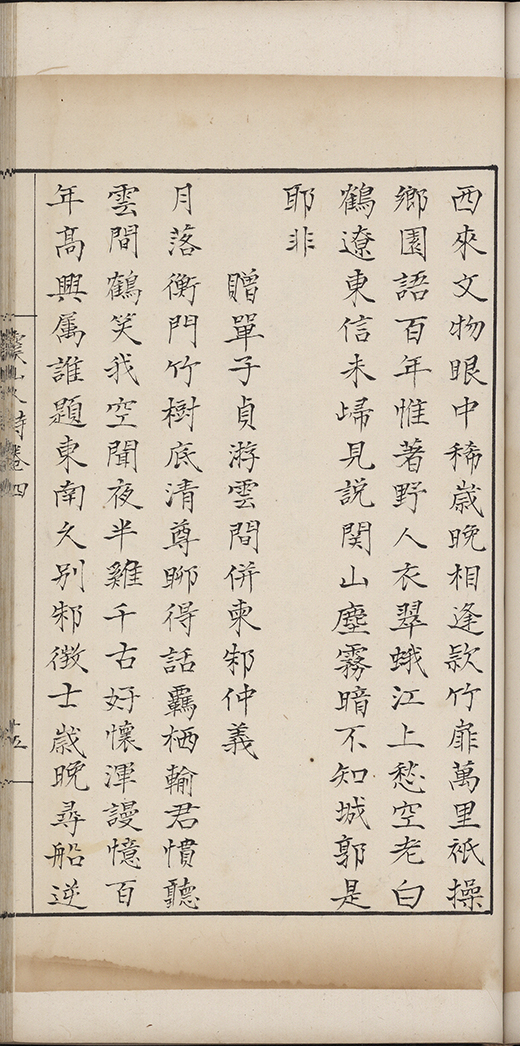 西來文物眼中稀歲晚相逢款竹扉萬里秖操
鄉園語百年惟著野人衣翠蛾江上愁空老白
鶴遼東信未歸見説関山塵霧暗不知城郭是
耶非
贈單子貞游雲間併柬邾仲義
月落衡門竹樹底清尊聊得話羈栖輸君慣聽
雲間鶴笑我空聞夜半雞千古好懷渾謾憶百
年高興属誰題東南久别邾徴士歲晚尋船逆
人詩卷四
十五